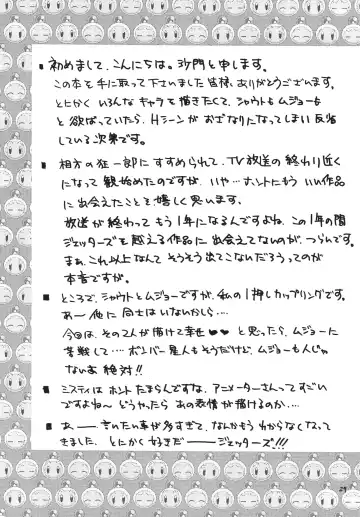 ■初めまして、こんにちは。沙門と申します。
この本を手に取って下さいました皆様、ありがとうございます。
とにかく いろんな キャラを描きたくて、シャウトもムジョーも
と 欲ばっていたら、Hシーンが おざなりになってしまい 反省
している次第です。
■相方の狂一郎にすすめられて、TV放送の終わり近く
になって 観始めたのですが、いや…ホントにもう いい作品
に出会えたことを嬉しく思います。
放送が終わって もう1年になるんですよね、この1年の間
ジェッターズを越える作品に出会えてないのが、つらいです。
まぁ、これ以上なんて そうそう出てこないだろうってのが
本音ですが。
■ところで、シャウトとムジョーですが、私の1押しカップリングです。
あ〜 他に同士はいないかしら…
今回は、その2人が描けて幸せ♥♥ と思ったら、ムジョーに
苦戦して…ボンバー星人もそうだけど、ムジョーも人じゃ
ないよ 絶対!!
■ミスティは ホント たまらんですな、アニメーターさんって すごい
ですよね〜 どうやったら あの表情が描けるのか…
■あー 言いたい事が多すぎて、なんかもう わからなくなって
きました、とにかく 好きだ――ジェッターズ!!!
29